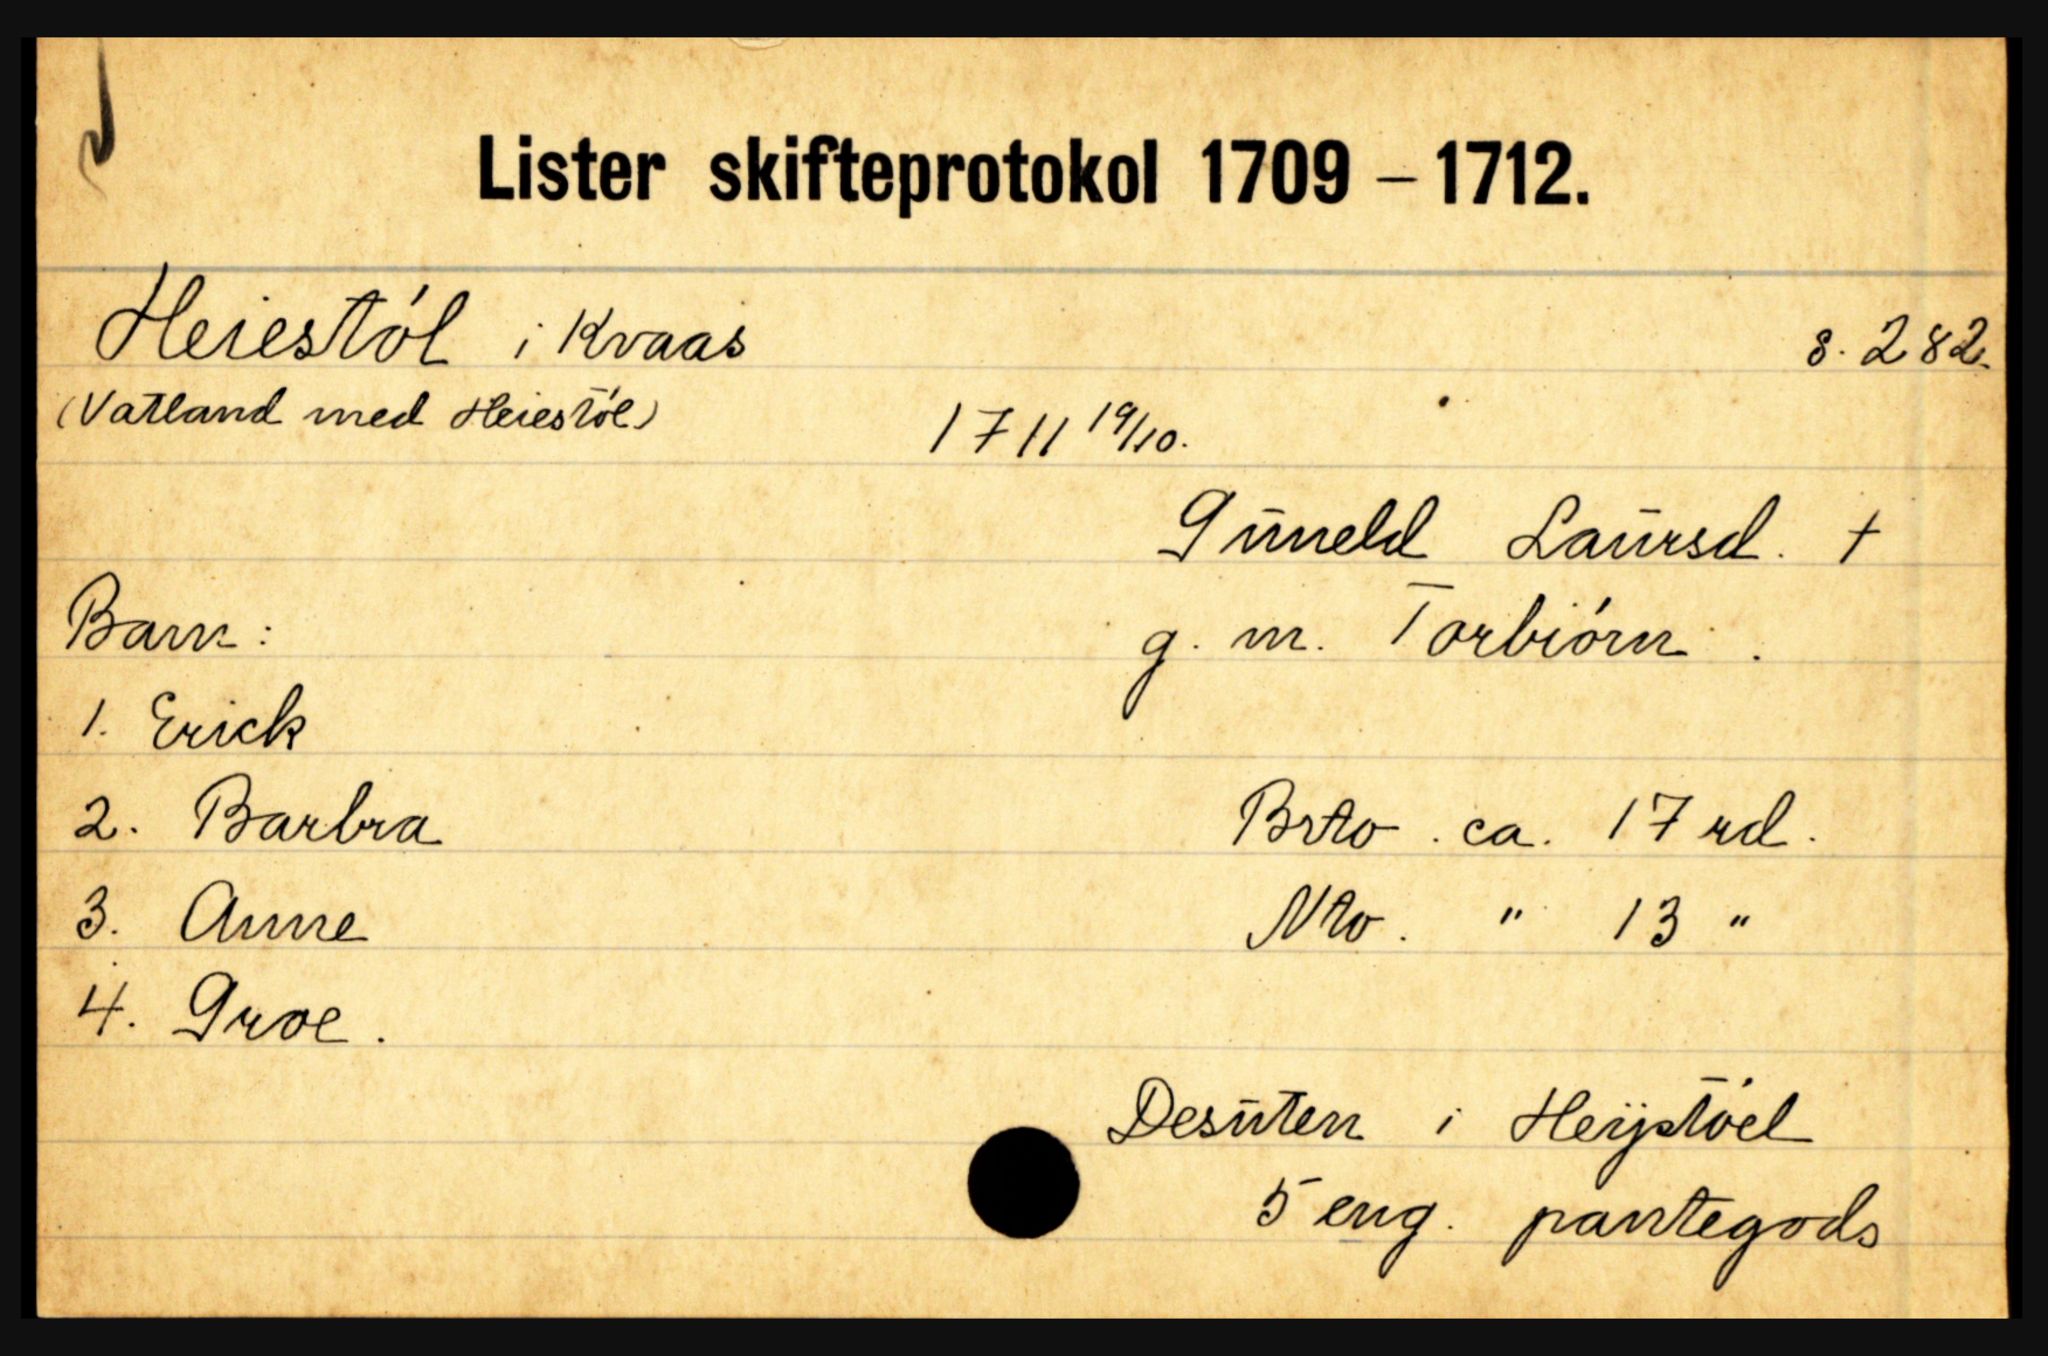 Lister skifteprotokol 1709 – 1712.
Heiestól i Kvaas s. 282.
(Vatland med Heiestól)
1711 19/10.
Gūneld Laūrsd. †
Barn: g. m. Torbiórn.
1. Erick
2. Barbra Brto. ca. 17 rd.
3. Anne Nto. " 13 "
4. Groe.
Desūten i Heÿstóel
5 eng. pantegods